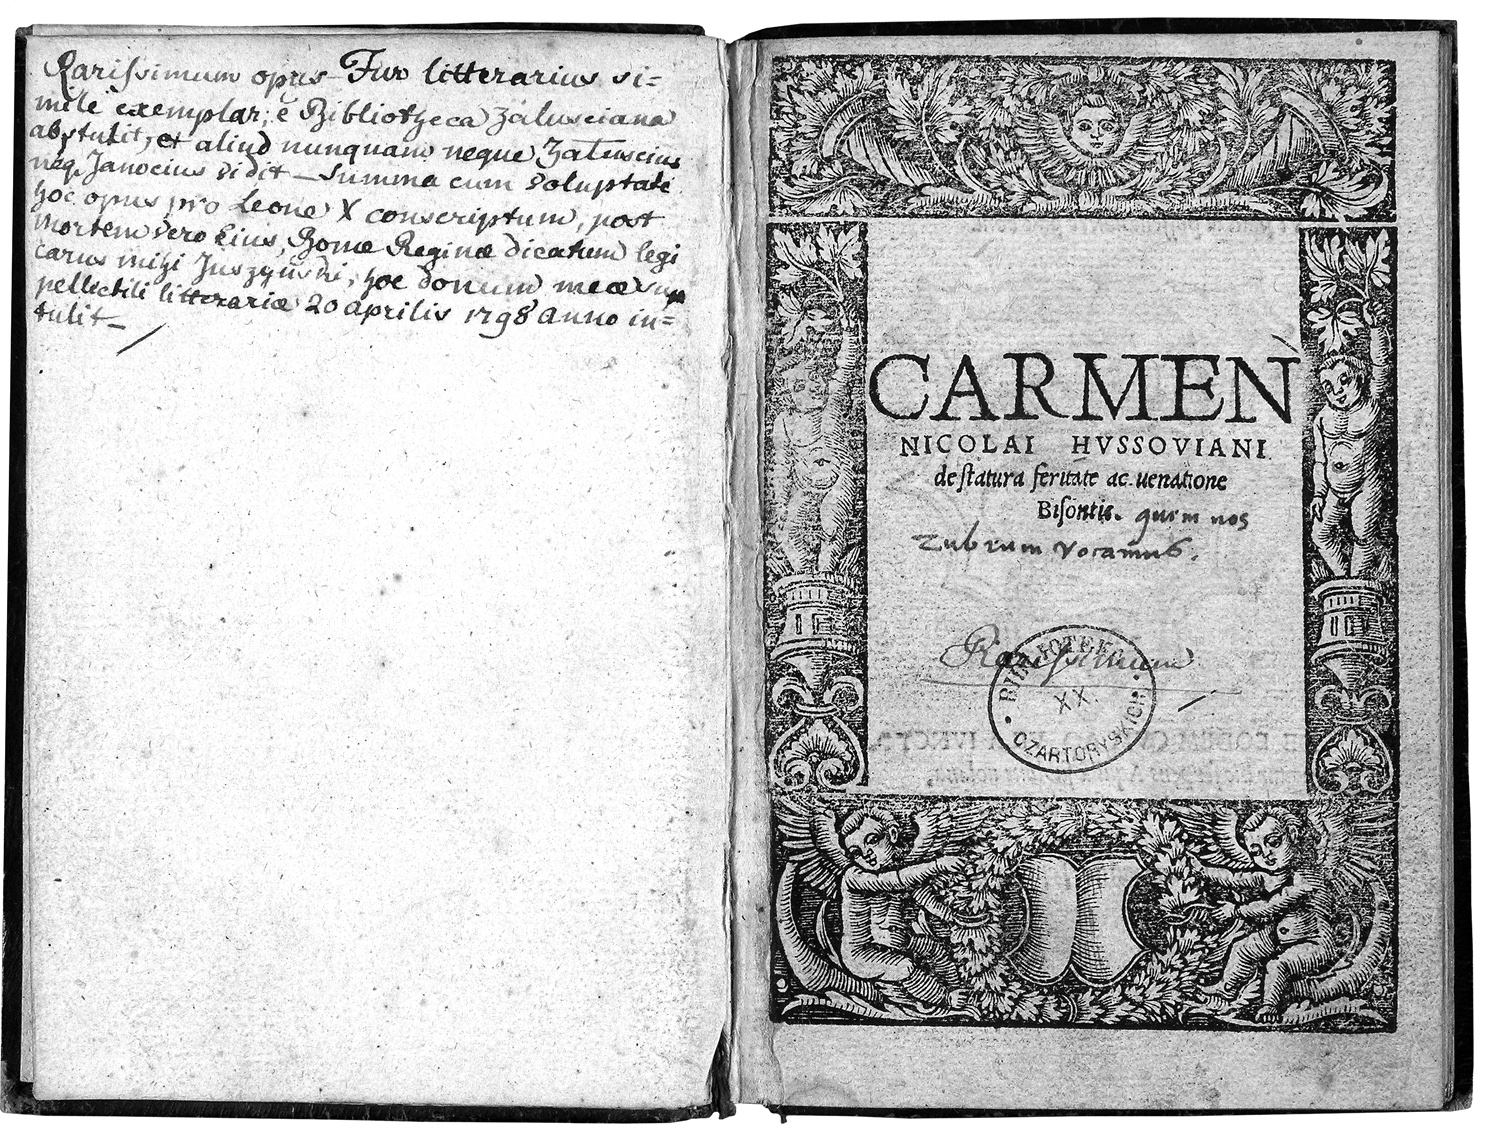 Rarissimum opus Fur litterarius si=
mile exemplar, e Bibliotheca Zalusciana
abstulit, et aliud nunquam neque Załuscius
neq. Janocius vidit – Summa cum voluptate
hoc opus pro Leone X conscriptum, post
mortem vero Ejus, Bonæ Reginæ dicatum legi
carus mihi Juszyński, hoc donum meæ sup
pellectili litterariæ 20 aprilis 1798 anno in=
tulit –
CARMEN
NICOLAI HVSSOVIANI
de ſtatura feritate ac uenatione
Biſontis. quem nos
Zubrum vocamus.
Rarissimum
BIBLIOTEKA
XX.
CZARTORYSKICH